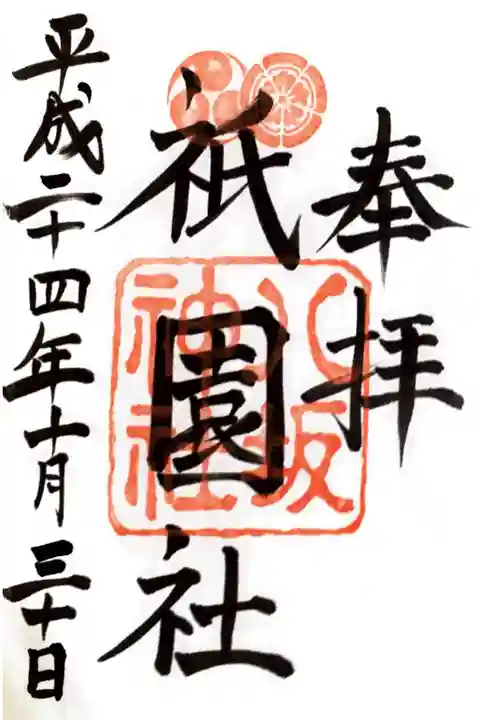 奉拝
祇園社
八坂
神社
平成二十四年十月三十日